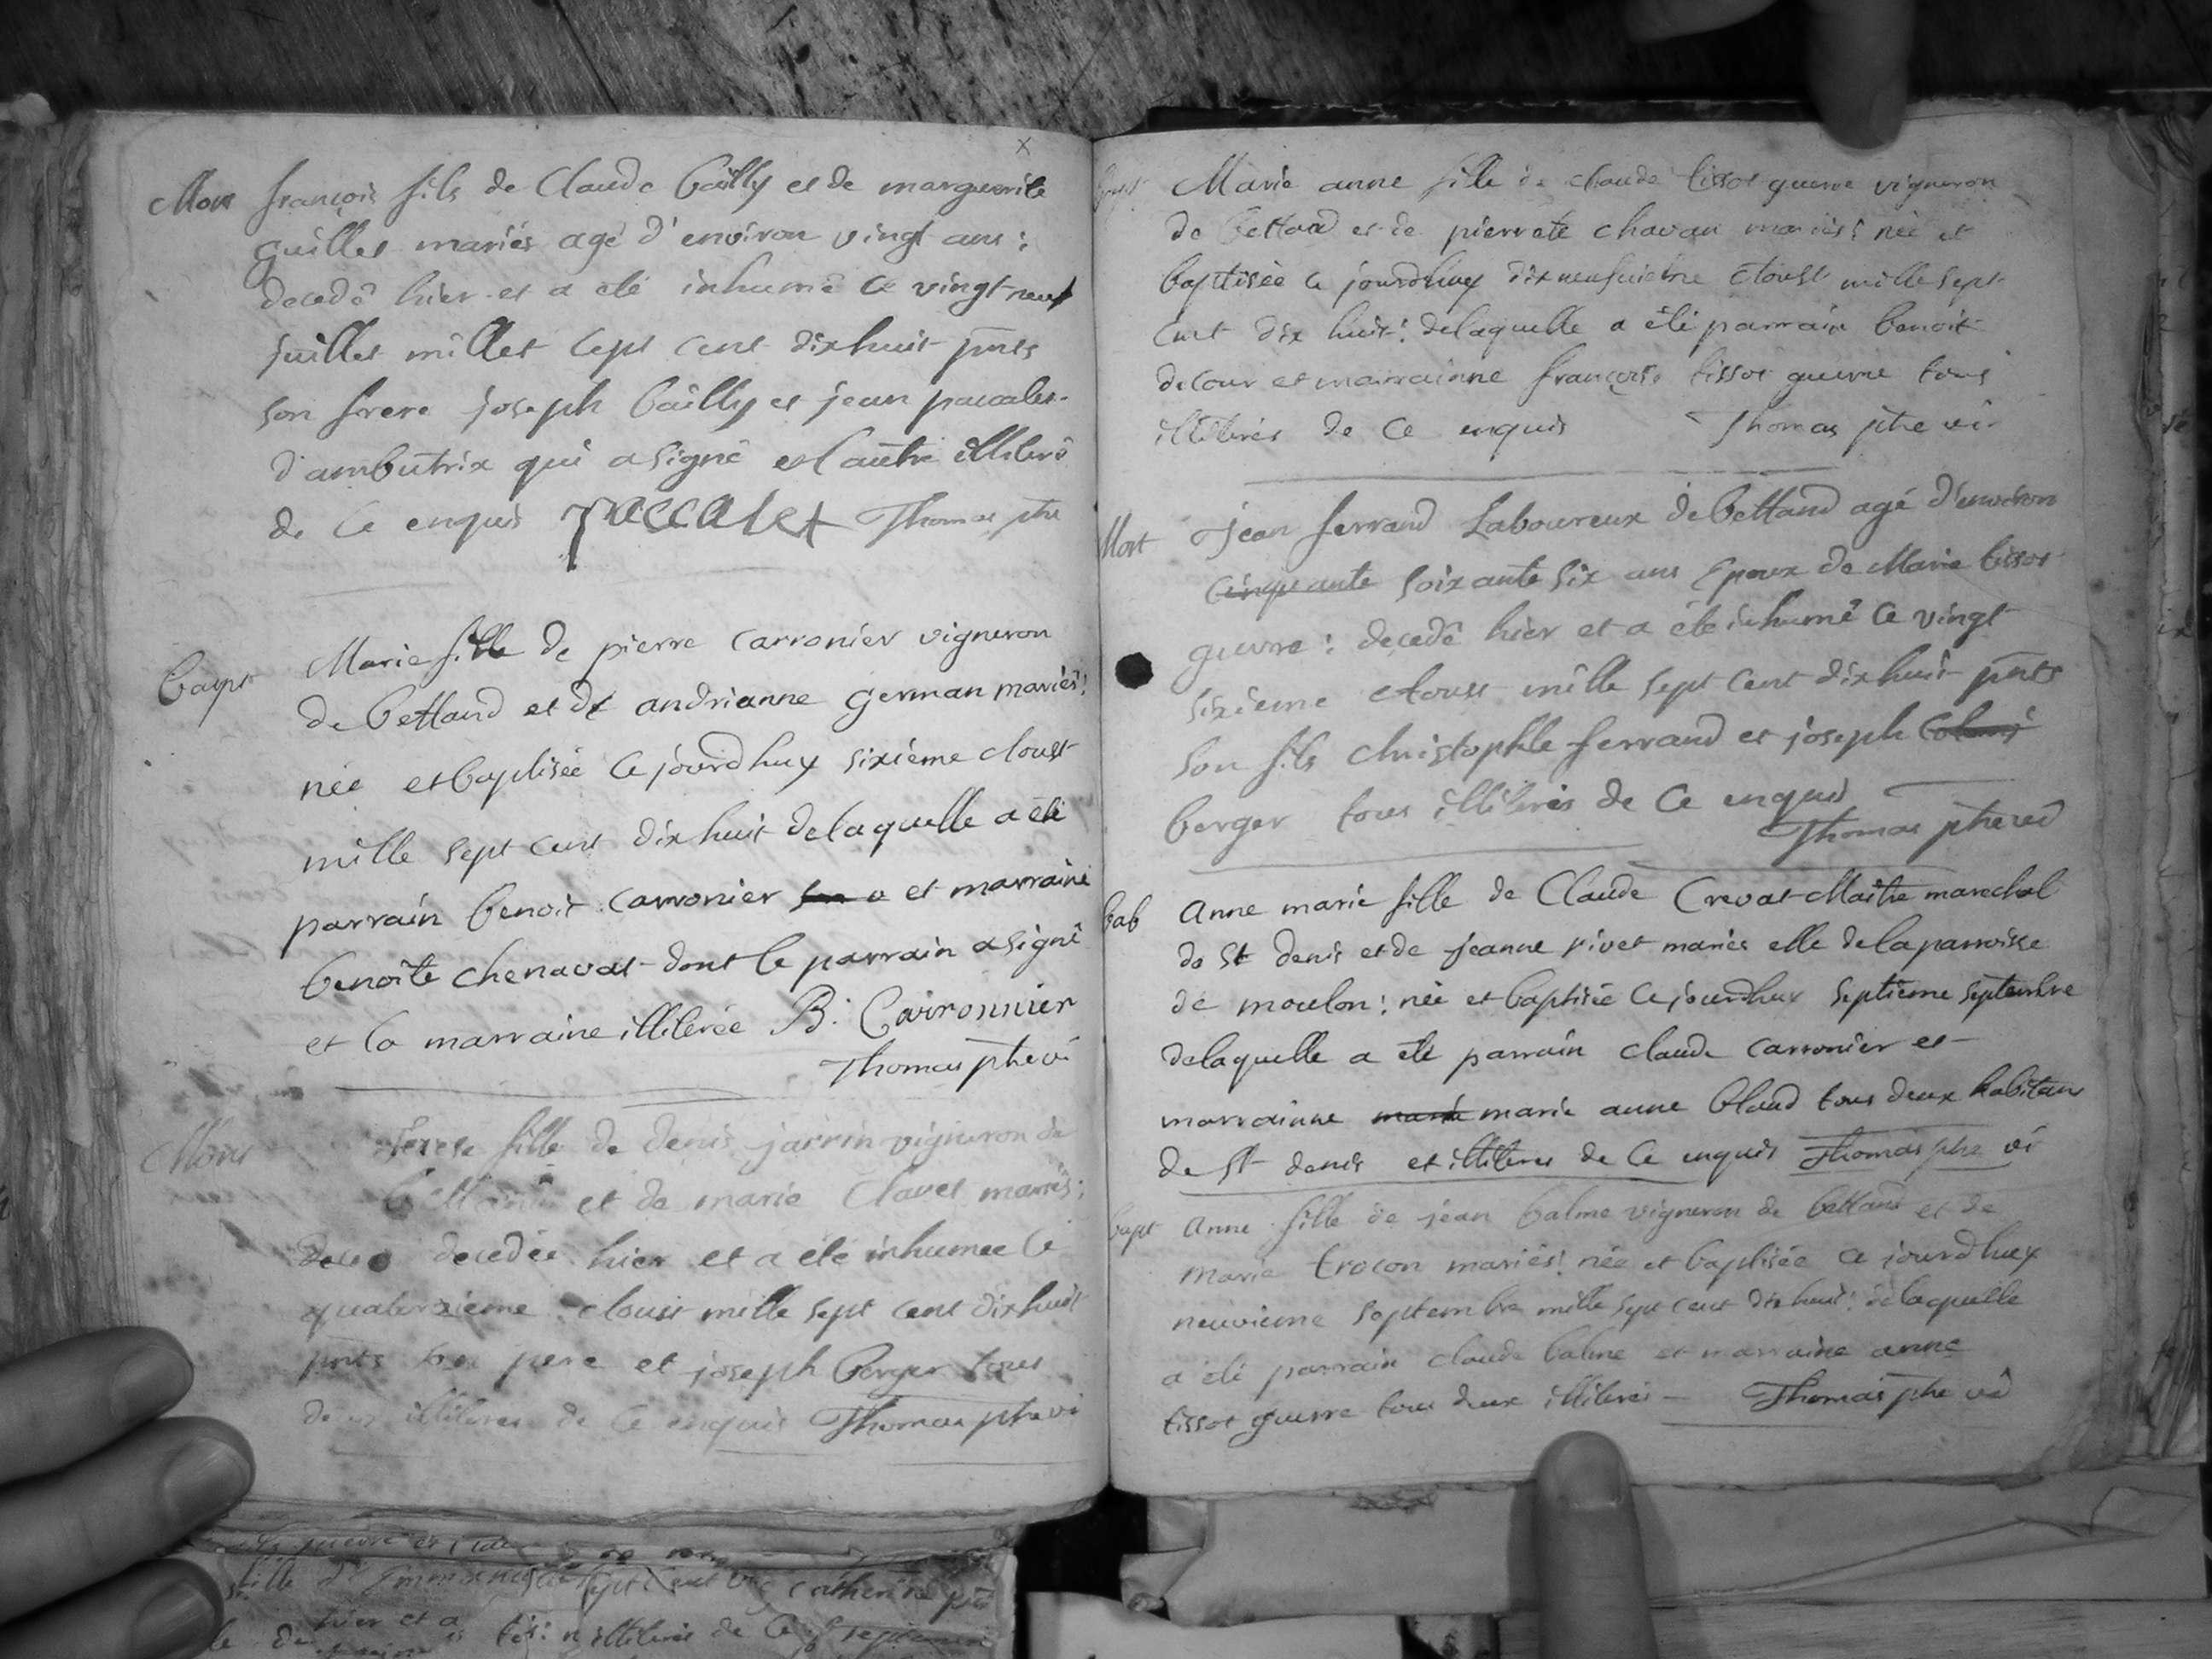 Mort françois fils de Claude bailly et de marguerite
guillet mariés agé d'environ vingt ans :
decedé hier et a été inhumé ce vingt neuf
juillet millet sept cent dixhuit pnts
son frere joseph bailly et jean paccalet
d'ambutrix qui a signé et l'autre illiteré
de ce enquis paccalet Thomas ptre
Bapt Marie fille de pierre carronier vigneron
de bettand et de andrianne german mariés :
née et baptisée ce jourdhuy sixième aoust
mille sept cent dixhuit delaquelle a été
parrain benoit carronier et marraine
benoîte chenavat dont le parrain a signé
et la marraine illiterée B. Carronnier
Thomas ptre vi
Mort Terese fille de denis jarrin vigneron de
bettand et de marie Clavet mariés :
decedée hier et a été inhumee le
quatorzieme aoust mille sept cent dixhuit
pnts son pere et joseph berger tous
deux illiteres de ce enquis Thomas ptre vi
bapt Marie anne fille de claude tissot guerre vigneron
de bettand et de pierrete chavan mariés : née et
baptisée ce jourdhuy dixneufuieme aoust mille sept
cent dix huit : delaquelle a été parrain benoit
decour et marrainne françoise tissot guerre tous
illiterés de ce enquis Thomas ptre vi
Mort jean ferrand Laboureux de bettand agé d'environ
cinquante soixante six ans Epoux de Marie tissot
guerre : decedé hier et a été inhumé ce vingt
sixieme aoust mille sept cent dixhuit pnts
son fils christophle ferrand et joseph
berger tous illiterés de ce enquis
Thomas ptre vi
bab Anne marie fille de Claude Crevat Maître marechal
de St denis et de jeanne rivet mariés elle de la parroisse
de moulon : née et baptisée ce jourdhuy septieme septembre
delaquelle a été parrain claude carronier et
marrainne marie marie anne bland tous deux habitans
de St denis et illiteres de ce enquis Thomas ptre vi
bapt Anne fille de jean balme vigneron de bettand et de
Marie trocon mariés : née et baptisée ce jourdhuy
neuvieme septembre mille sept cent dix huit : delaquelle
a été parrain claude balme et marraine anne
tissot guerre tous deux illiterés Thomas ptre vi
fille d
sept cent catherine
hier et a
illiterés de ce